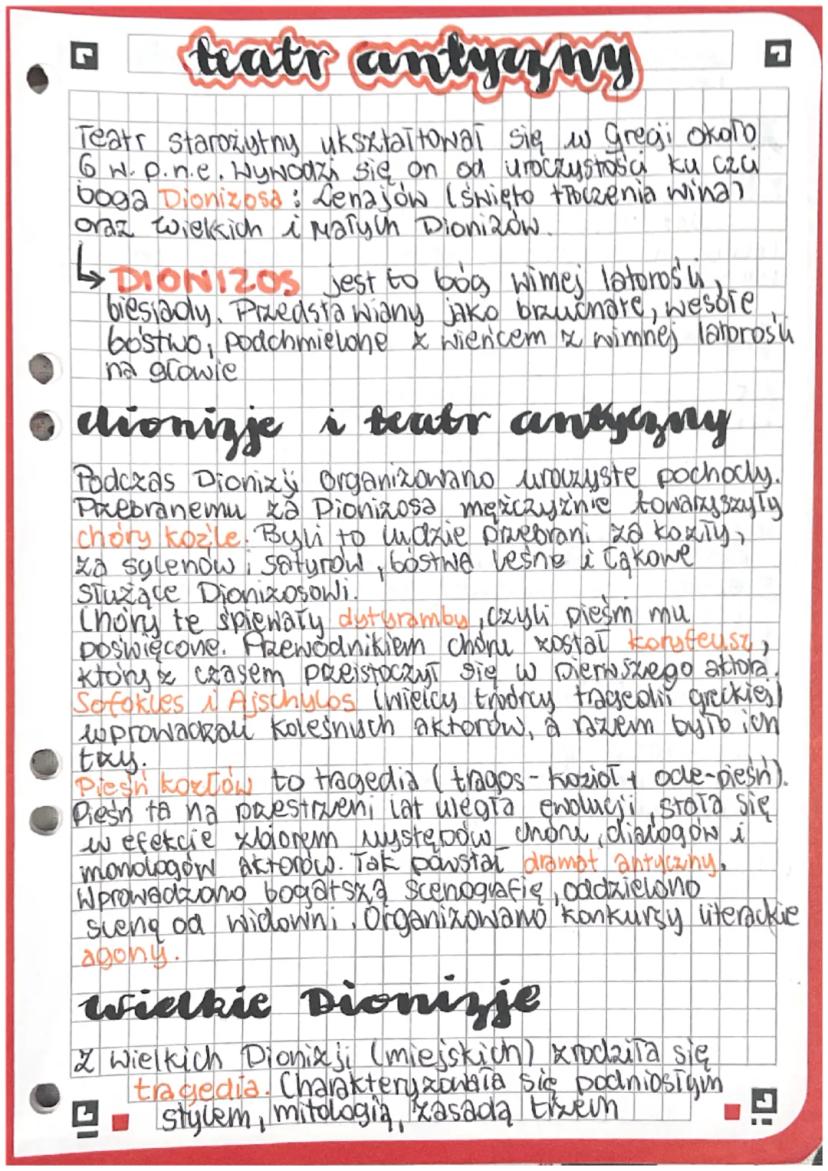 teatr antyczny
Teatr starożytny ukształtował się w Grecji około
6 w. p.n.e. Wywodzi się on od uroczystości ku czci
boga Dionizosa: Lenajów (święto tłoczenia wina)
oraz Wielkich i Małych Dionizów.
↳ DIONIZOS jest to bóg wimej latorośli,
biesiady. Przedstawiany jako brzuchate, wesołe,
bóstwo, podchmielone z wieńcem z wimnej latorośli
na głowie
dionizje i teatr antyczny
Podczas Dionizji organizowano uroczyste pochody.
Przebranemu za Dionizosa mężczyźnie towarzyszyły
chóry koźle. Byli to ludzie przebrani za kozły,
za sylenów i satyrów, bóstwa leśne i łąkowe
służące Dionizosowi.
Chóry te śpiewały dytyramby, czyli pieśni mu
poświęcone. Przewodnikiem chóru został koryfeusz,
który z czasem przeistoczył się w pierwszego aktora.
Sofokles i Ajschylos (wielcy twórcy tragedii greckiej)
wprowadzali kolejnych aktorów, a razem było ich
trzy.
Pieśń kozłów to tragedia (tragos - kozioł + ode-pieśń).
Pieśń ta na przestrzeni lat uległa ewolucji, stała się
w efekcie zbiorem występów chóru, dialogów i
monologów aktorów. Tak powstał dramat antyczny.
Wprowadzono bogatszą scenografię, oddzielono
scenę od widowni. Organizowano konkursy literackie
agony.
Wielkie Dionizje
Z Wielkich Dionizji (miejskich) zrodziła się
tragedia. Charakteryzowała się podniosłym
stylem, mitologią, zasadą trzech